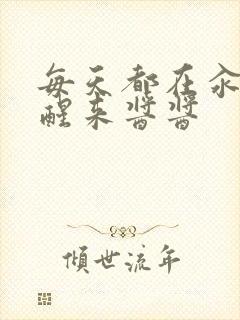 每天都在汆
醒来酱酱
倾世流年